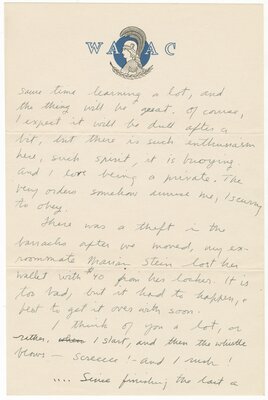 WAAC
same time learning a lot, and
the thing will be great. Of course,
I expect it will be dull after a
bit, but there is such enthusiasm
here, such spirit, it is buoying.
And I love being a private. The
very orders somehow amuse me, I scurry
to obey.
There was a theft in the
barracks after we moved, my ex-
roommate Marian Stein lost her
wallet with $10 from her locker. It is
too bad, but it had to happen,
best to get it over with soon.
I think of you a lot, or
rather, I start, and then the whistle
blows — Screeeee! - and I rush!
.... Since finishing the last a